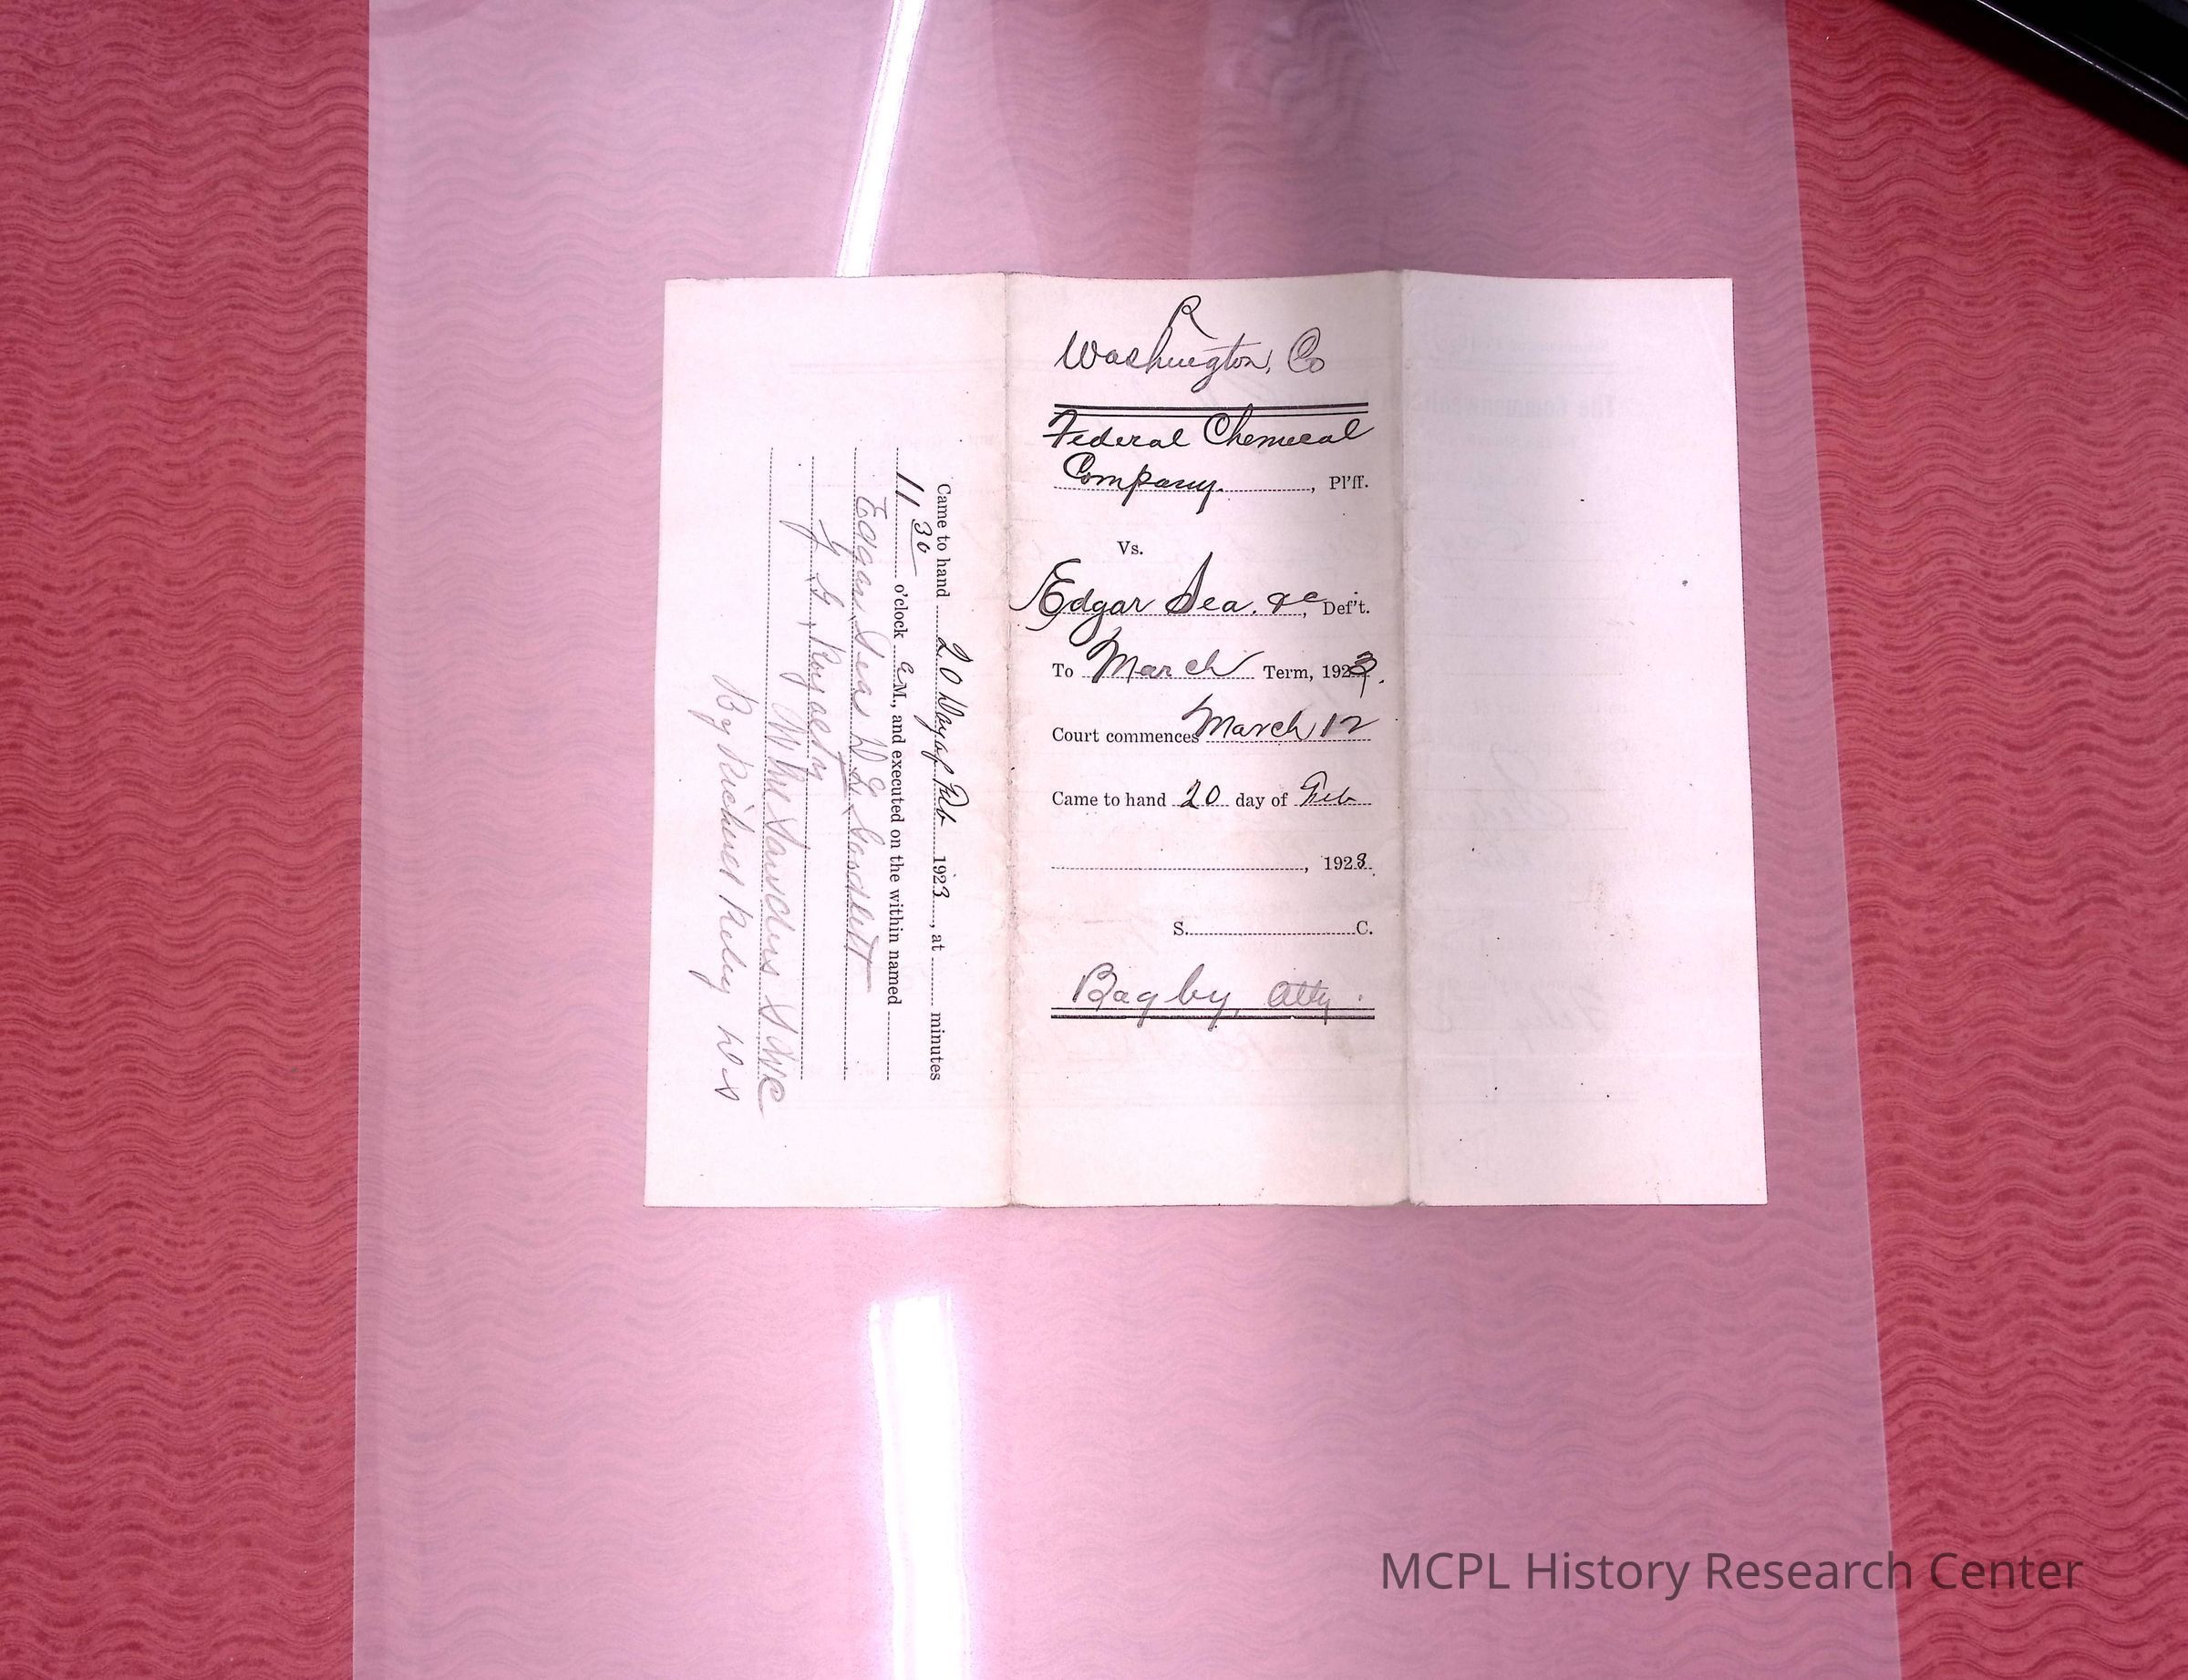 R
Washington, Co
Federal Chemical
Company, Pl'ff.
Vs.
Edgar Sea. &c, Def't.
To March Term, 1923.
Court commences March 12
Came to hand 20 day of Feb
, 1923.
S. C.
Bagby, Atty.
Came to hand 20 Day of Feb 1923, at minutes
11 30 o'clock a M., and executed on the within named
Edgar Seas W. E. Goodlett
J. G.
Saunders S W C
By Richard Kelly D S
MCPL History Research Center